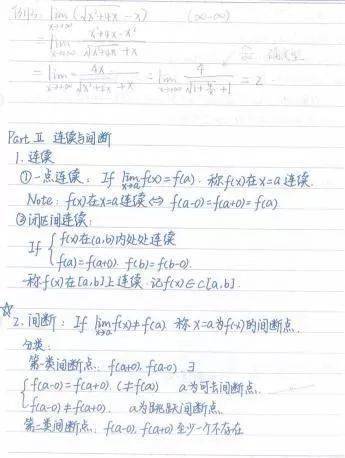 例15. lim x→+∞ (√x²+4x - x) (∞-∞)
= lim x→+∞ x²+4x-x² / √x²+4x + x
= lim x→+∞ 4x / √x²+4x + x = lim x→+∞ 4 / √1+4/x +1 = 2
Part Ⅱ 连续与间断
1. 连续
①一点连续: If lim x→a f(x)=f(a). 称f(x)在x=a连续.
Note: f(x)在x=a连续⇔ f(a-0)=f(a+0)=f(a)
②闭区间连续:
If { f(x)在(a,b)内处处连续
f(a)=f(a+0). f(b)=f(b-0).
称f(x)在[a,b]上连续. 记f(x)∈C[a,b].
☆ 2. 间断: If lim x→a f(x)≠f(a) 称x=a为f(x)的间断点.
分类:
第一类间断点: f(a+0). f(a-0). ∃
{ f(a-0)=f(a+0). (≠f(a)) a为可去间断点.
f(a-0)≠f(a+0). a为跳跃间断点.
第二类间断点: f(a-0). f(a+0)至少一个不存在